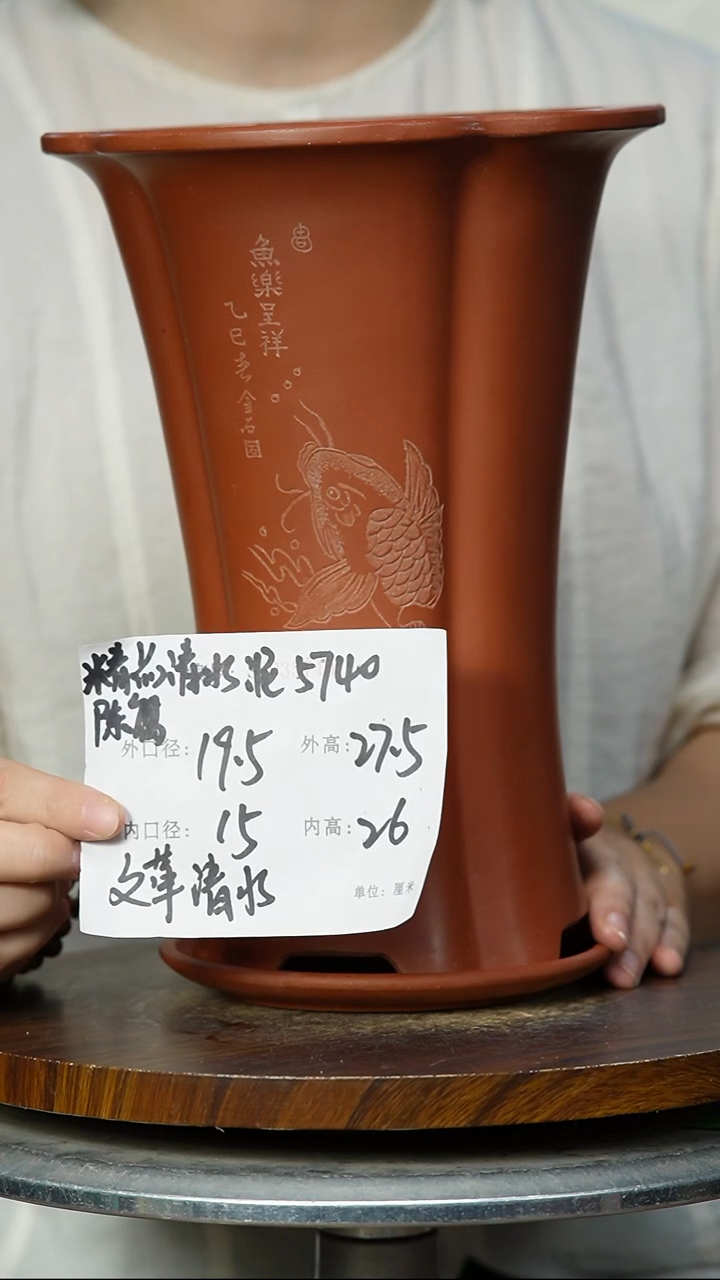 魚樂呈祥
乙巳春金石田
精品清水泥 5740
陈鹤
外口径: 19.5 外高: 27.5
内口径: 15 内高: 26
文革清水
单位: 厘米